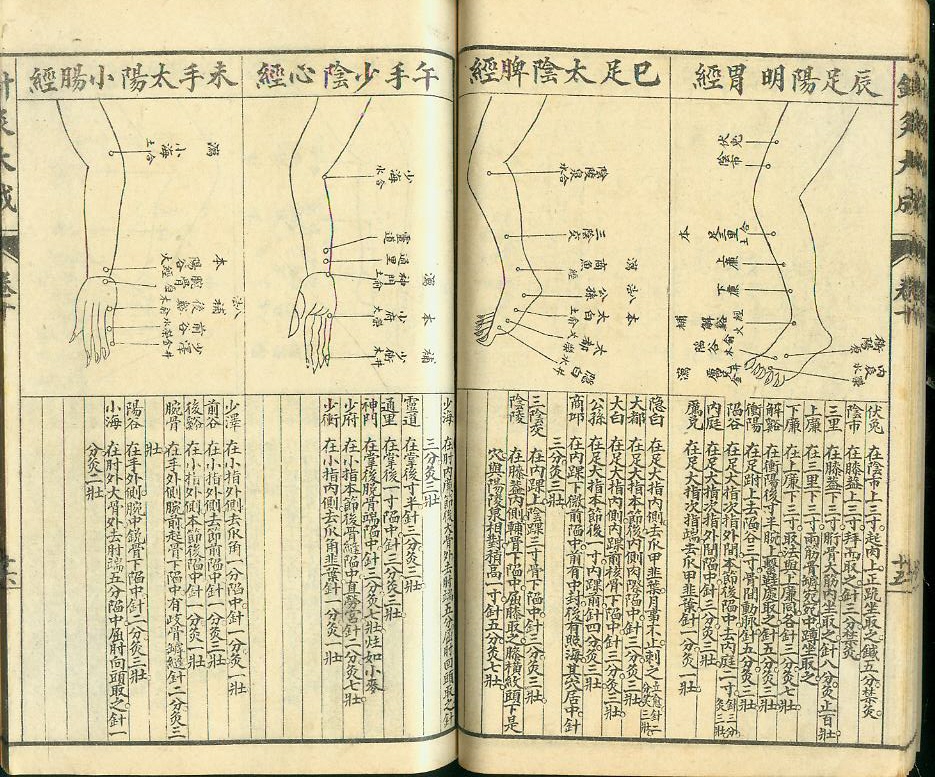 鍼灸大成
辰足陽明胃經
伏兔
陰市
本
足三里
合土
上廉
下廉
補
解谿
火經
陷谷
木俞
瀉
厲兌
金井
衝陽
原
內庭
水滎
伏兔 在陰市上三寸起肉上正跪坐取之鍼五分禁灸
陰市 在膝蓋上三寸拜而取之針三分禁灸
三里 在膝蓋下三寸䯒骨大筋內坐取之針八分灸止百壯
上廉 在三里下三寸兩筋骨罅宛宛中蹲坐取之
下廉 在上廉下三寸取法與上廉同各針三分灸七壯
解谿 在衝陽後寸半腕上繫鞋處取之針五分灸三壯
衝陽 在足跗上去陷谷三寸骨間動脈針五分灸三壯
陷谷 在足大指次指外間本節後陷中去內庭二寸針三分灸三壯
內庭 在足大指次指外間陷中針三分灸三壯
厲兌 在足大指次指端去爪甲韭葉針一分灸一壯
巳足太陰脾經
陰陵泉
水合
三陰交
瀉
商丘
經
公孫
本
太白
土俞
大都
火滎
隱白
木井
隱白 在足大指內側去爪甲韭葉月事不止刺之
大都 在足大指本節後內側肉際陷中針三分灸三壯
太白 在足大指內側內踝前核骨下陷中針三分灸三壯
公孫 在足大指本節後一寸內踝前針四分灸三壯
商邱 在內踝下微前陷中前有中封後有照海其穴居中針
三分灸三壯
三陰交 在內踝上除踝三寸骨下陷中針三分灸三壯
陰陵 在膝蓋內側輔骨下陷中屈膝取之膝橫紋頭下是
穴與陽陵泉相對稍高一寸針五分灸七壯
午手少陰心經
少海
水合
靈道
通里
瀉
神門
土俞
本
少府
火滎
補
少衝
木井
少海 在肘內廉節後大骨外去肘端五分屈肘向頭取之針
三分灸三壯
靈道 在掌後寸半針三分灸三壯
通里 在掌後一寸陷中針三分灸三壯
神門 在掌後腕骨端陷中針三分灸七壯炷如小麥
少府 在小指本節後骨縫陷中直勞宮針二分灸七壯
少衝 在小指內側去爪角韭葉針一分灸一壯
未手太陽小腸經
瀉
小海
土合
本
陽谷
火經
腕骨
補
後谿
木俞
前谷
水滎
少澤
金井
少澤 在小指外側去爪角一分陷中針一分灸一壯
前谷 在小指外側去節前陷中針一分灸三壯
後谿 在小指外側本節後陷中針一分灸一壯
腕骨 在手外側腕前起骨下陷中有歧骨罅縫針二分灸三
壯
陽谷 在手外側腕中銳骨下陷中針二分灸三壯
小海 在肘外大骨外去肘端五分陷中屈肘向頭取之針一
分灸二壯
針灸大成